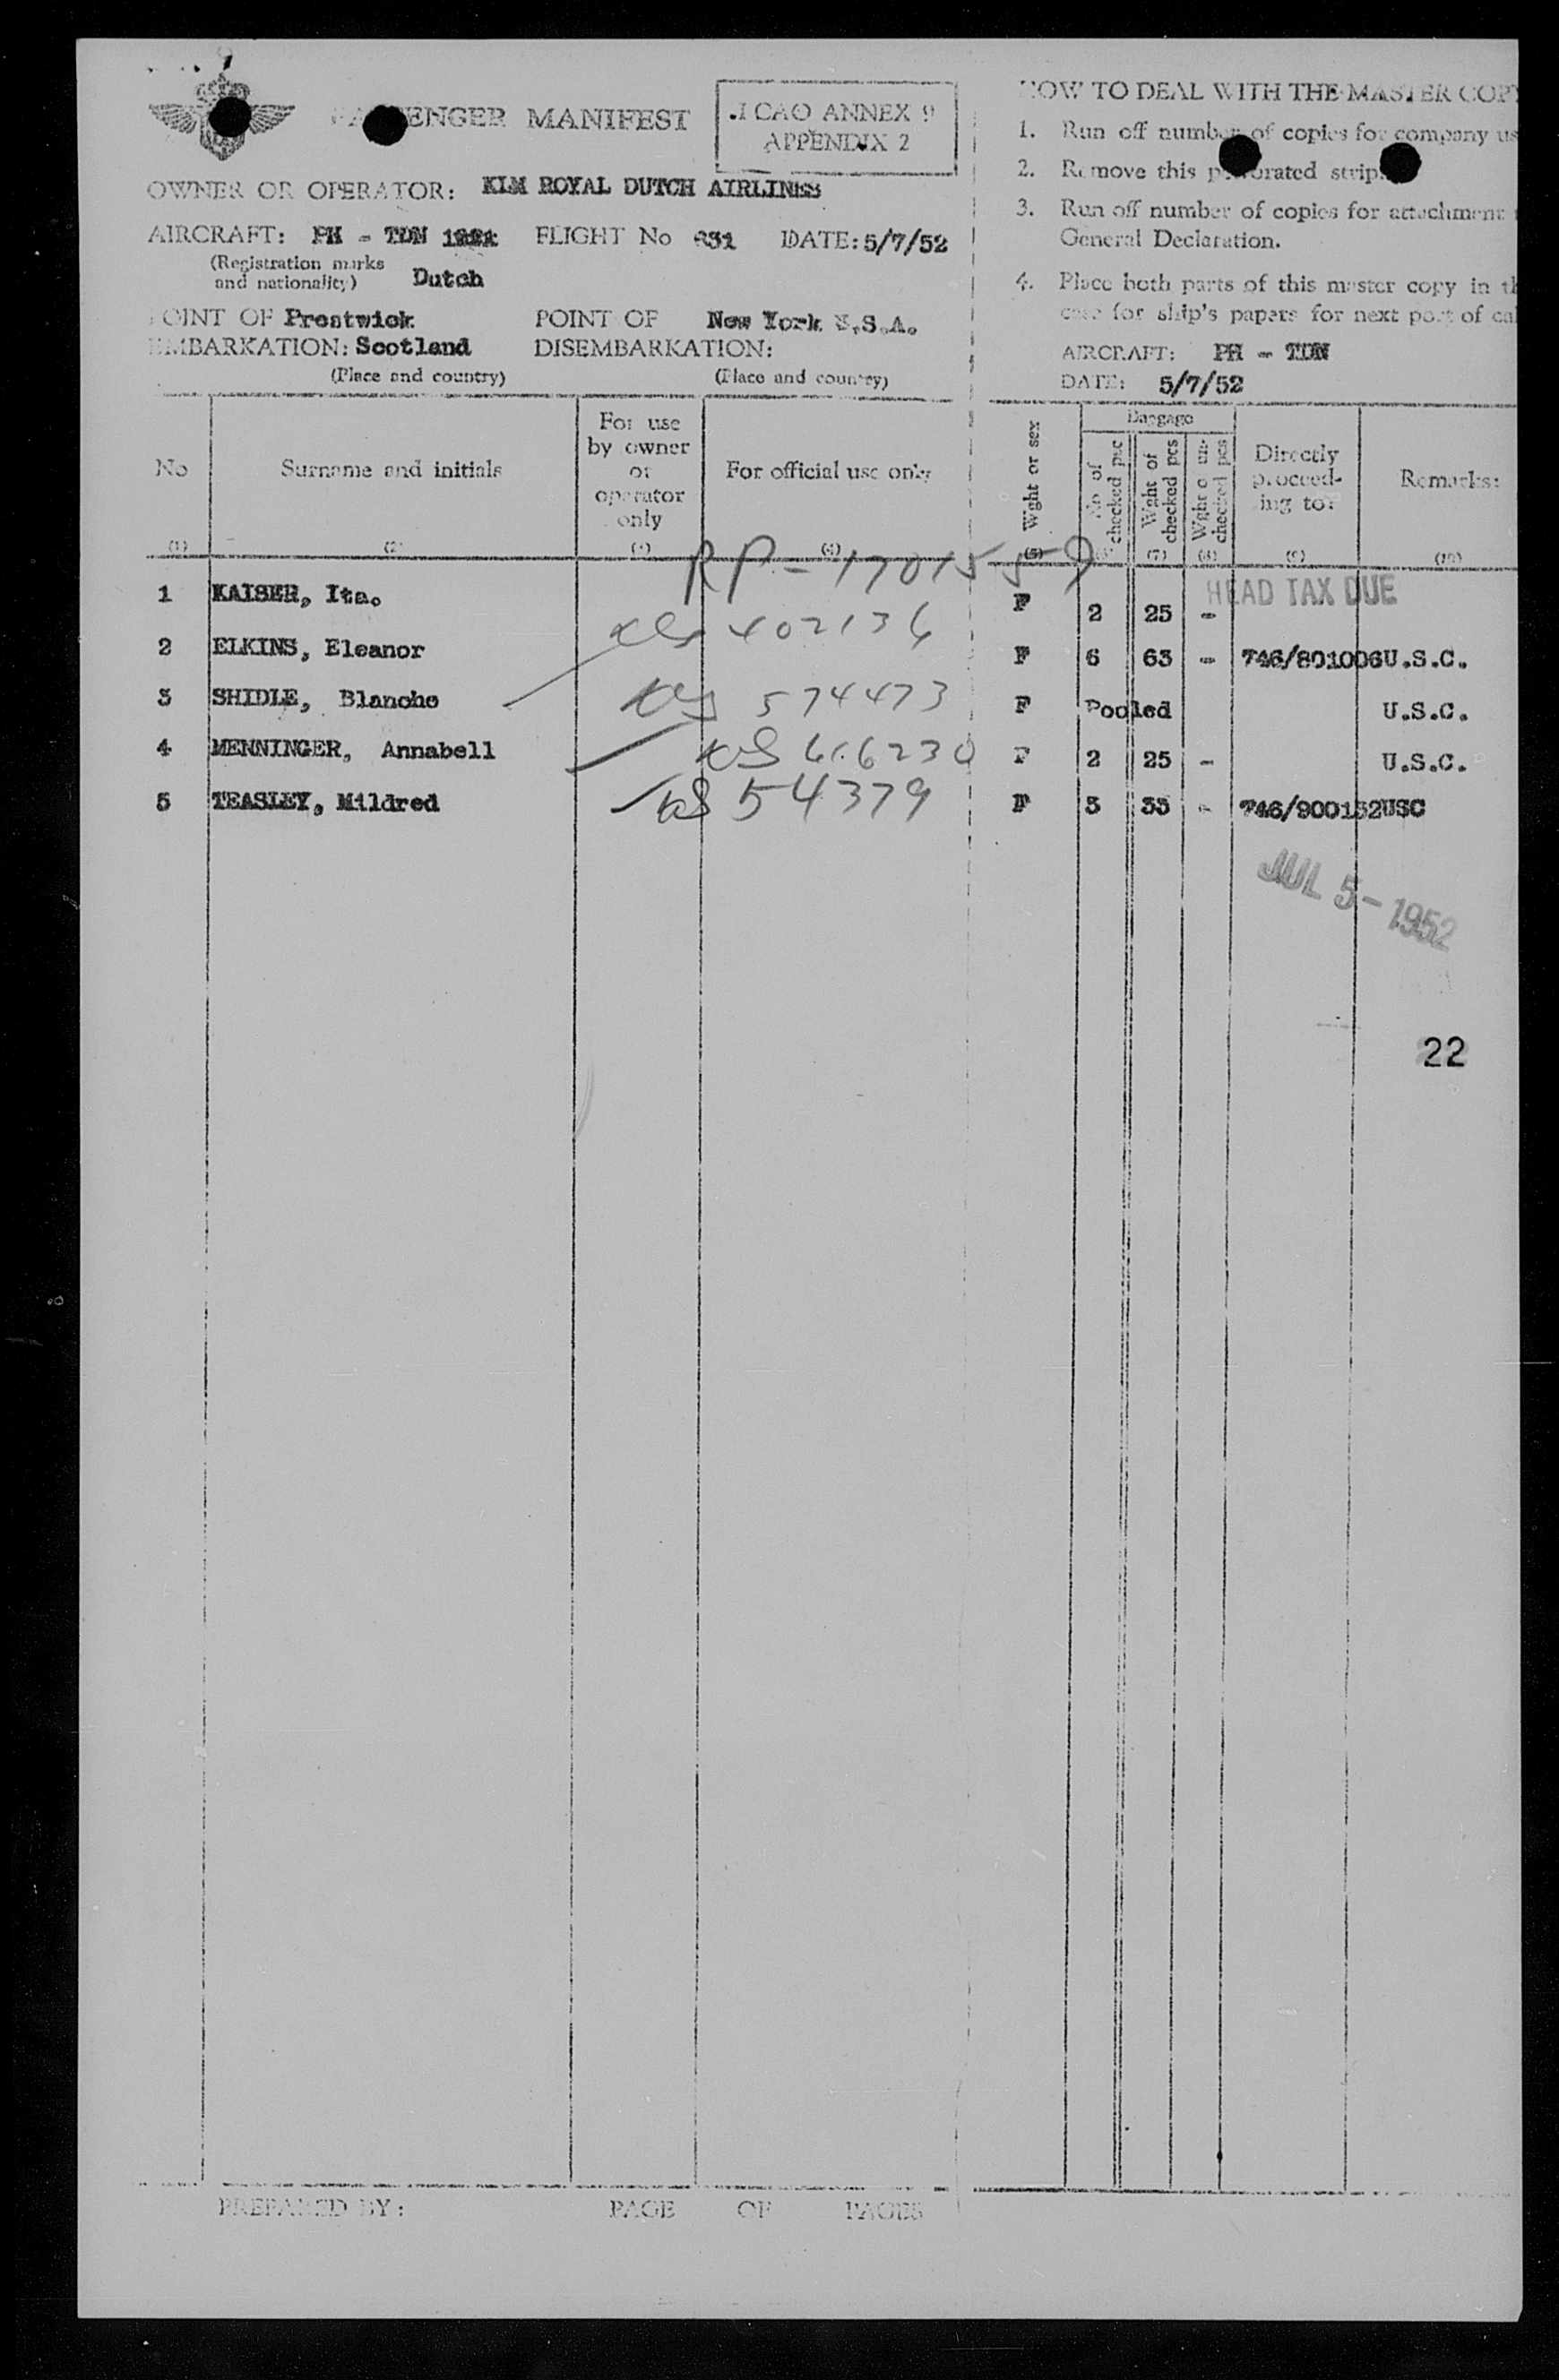 PASSENGER MANIFEST
I CAO ANNEX 9
APPENDIX 2
OWNER OR OPERATOR: KLM ROYAL DUTCH AIRLINES
AIRCRAFT: PH - TDN FLIGHT No 631 DATE: 5/7/52
(Registration marks
and nationality) Dutch
POINT OF Prestwick POINT OF New York U.S.A.
EMBARKATION: Scotland DISEMBARKATION:
(Place and country) (Place and country)
HOW TO DEAL WITH THE MASTER COPY
1. Run off number of copies for company us
2. Remove this perforated strip.
3. Run off number of copies for attachment
General Declaration.
4. Place both parts of this master copy in th
case for ship's papers for next port of cal
AIRCRAFT: PH - TDN
DATE: 5/7/52
No Surname and initials For use by owner or operator only For official use only Wght or sex Baggage No of checked pcs Wght of checked pcs Wght of un-checked pcs Directly proceed-ing to: Remarks:
(1) (2) (3) (4) (5) (6) (7) (8) (9) (10)
RP - 1701559
HEAD TAX DUE
1 KAISER, Ita. F 2 25 -
402136
2 ELKINS, Eleanor F 6 63 - 746/801006 U.S.C.
3 SHIDLE, Blanche 574473 F Pooled U.S.C.
4 MENNINGER, Annabell 616230 F 2 25 - U.S.C.
5 TEASLEY, Mildred 54379 F 3 33 - 746/900152 USC
JUL 5 - 1952
22
PREPARED BY: PAGE OF PAGES